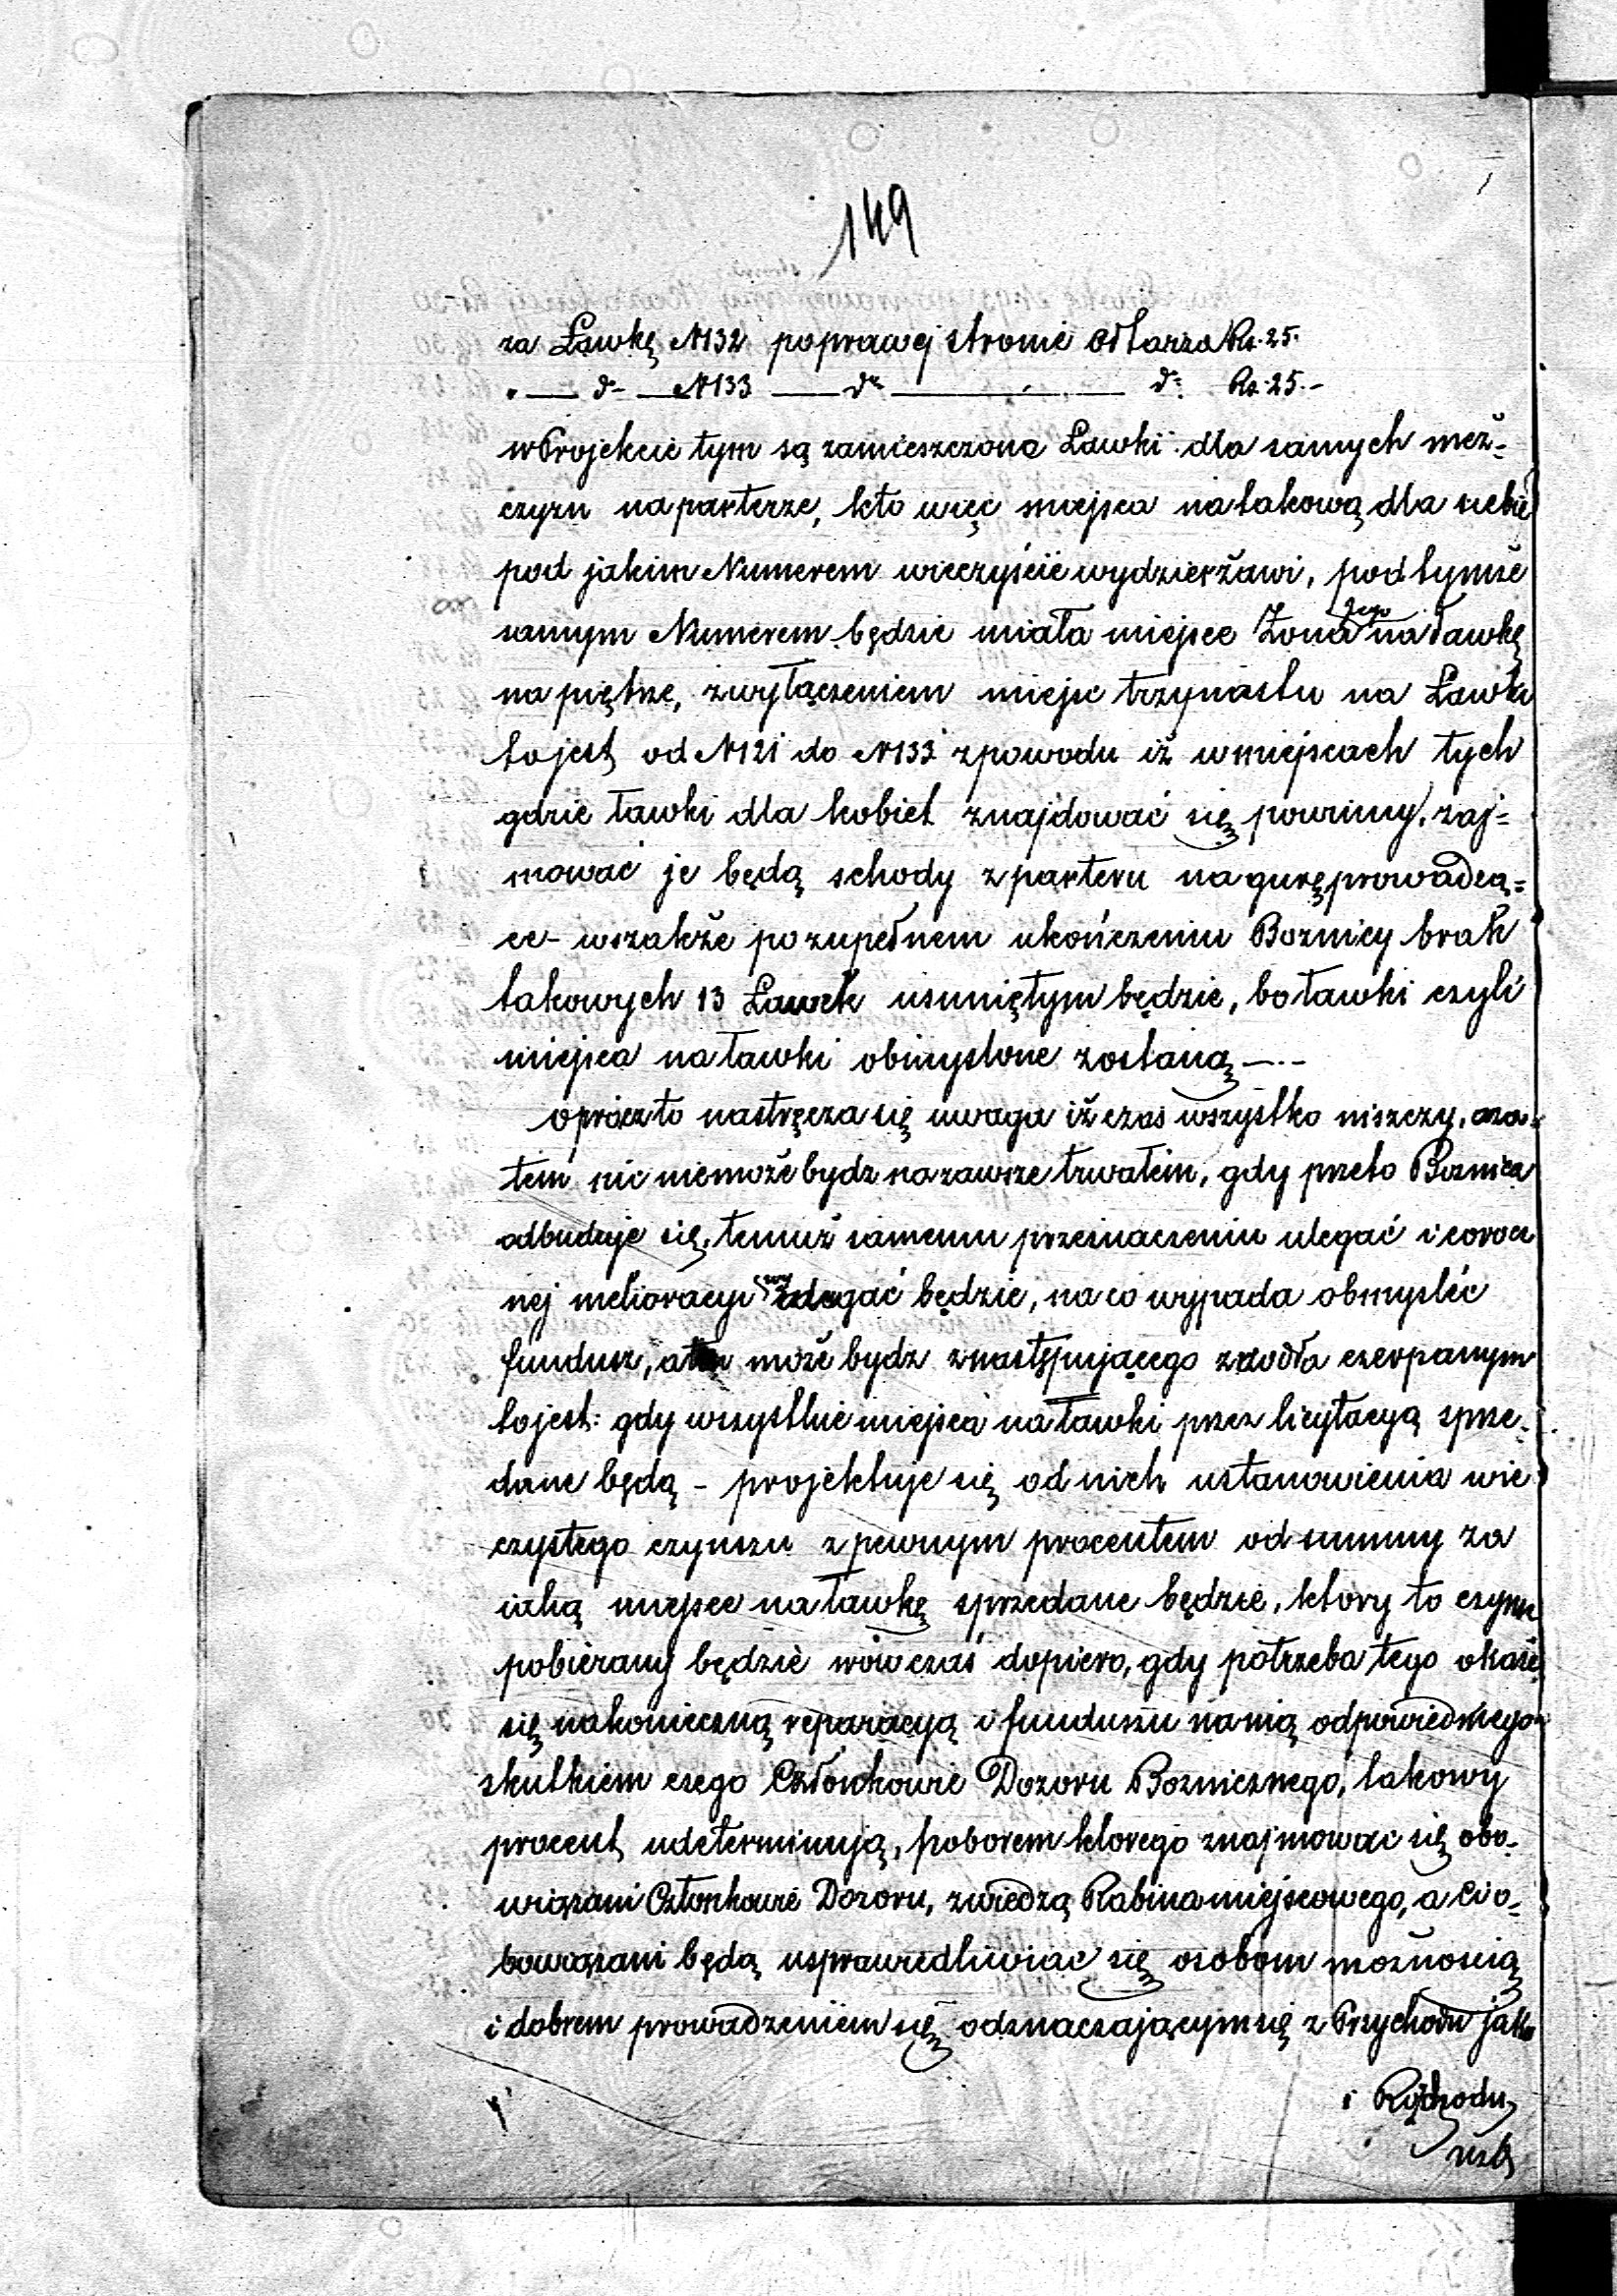 149
za Ławkę N132 poprawej stronie Ołtarza Rs. 25.
" — d° — N133 — d° — d° Rs. 25.-
w Projekcie tym są zamieszczone Ławki dla samych męż-
czyzn na parterze, kto więc miejsca na takową dla siebie
pod jakim Numerem wieczyście wydzierżawi, pod tymże
samym Numerem będzie miała miejsce Żona jego na Ławkę
na piętrze, z wyłączeniem miejsc trzynastu na Ławki
tojest od N121 do N133 z powodu iż w miejscach tych
gdzie ławki dla kobiet znajdować się powinny, zaj-
mować je będą schody z parteru na gurę prowadzą-
ce - wszakże po zupełnem ukończeniu Boznicy brak
takowych 13 Ławek usuniętym będzie, bo ławki czyli
miejsca na ławki obmyslone zostaną —.-
oprócz to nastręcza się uwaga iż czas wszystko niszczy, aza-
tém nic niemoże bydz na zawsze trwałém, gdy przeto Boznica
odbuduje się, temuż samemu przeznaczeniu ulegać i corocz
néj melioracyi będzie, na co wypada obmysléc
fundusz, a może bydz z następującego zrodła czerpanym
tojest: gdy wszystkie miejsca na ławki przez licytacyą sprze-
dane będą - projektuje się od nich ustanowienia wie
czystego czynszu z pewnym procentem od summy za
iaką miejsce na ławkę sprzedane będzie, ktory to czynsz
pobierany będzie wówczas dopiero, gdy potrzeba tego okaże
się na konieczną reparacyą i funduszu na nią odpowiedniego
skutkiem czego Członkowie Dozoru Boznicznego, takowy
procent udeterminują, poborem ktorego znajmowac się obo-
wiązani Członkowie Dozoru, z wiedzą Rabina miejscowego, a Ci o-
bowiązani będą usprawiedliwiac się osobom możnoscią
i dobrem prowadzeniem się odznaczającym się z Przychodu jako
i Rozchodu